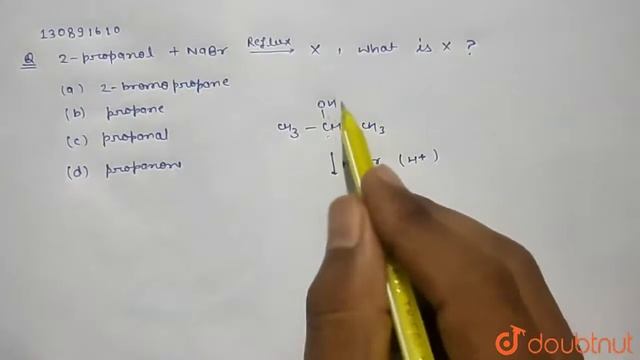 130891610
Q 2-propanol + NaBr Reflux X, what is X ?
(a) 2-bromopropane
(b) propane
(c) propanal
(d) propanone
OH
CH3 - CH CH3
(H+)
doubtnut